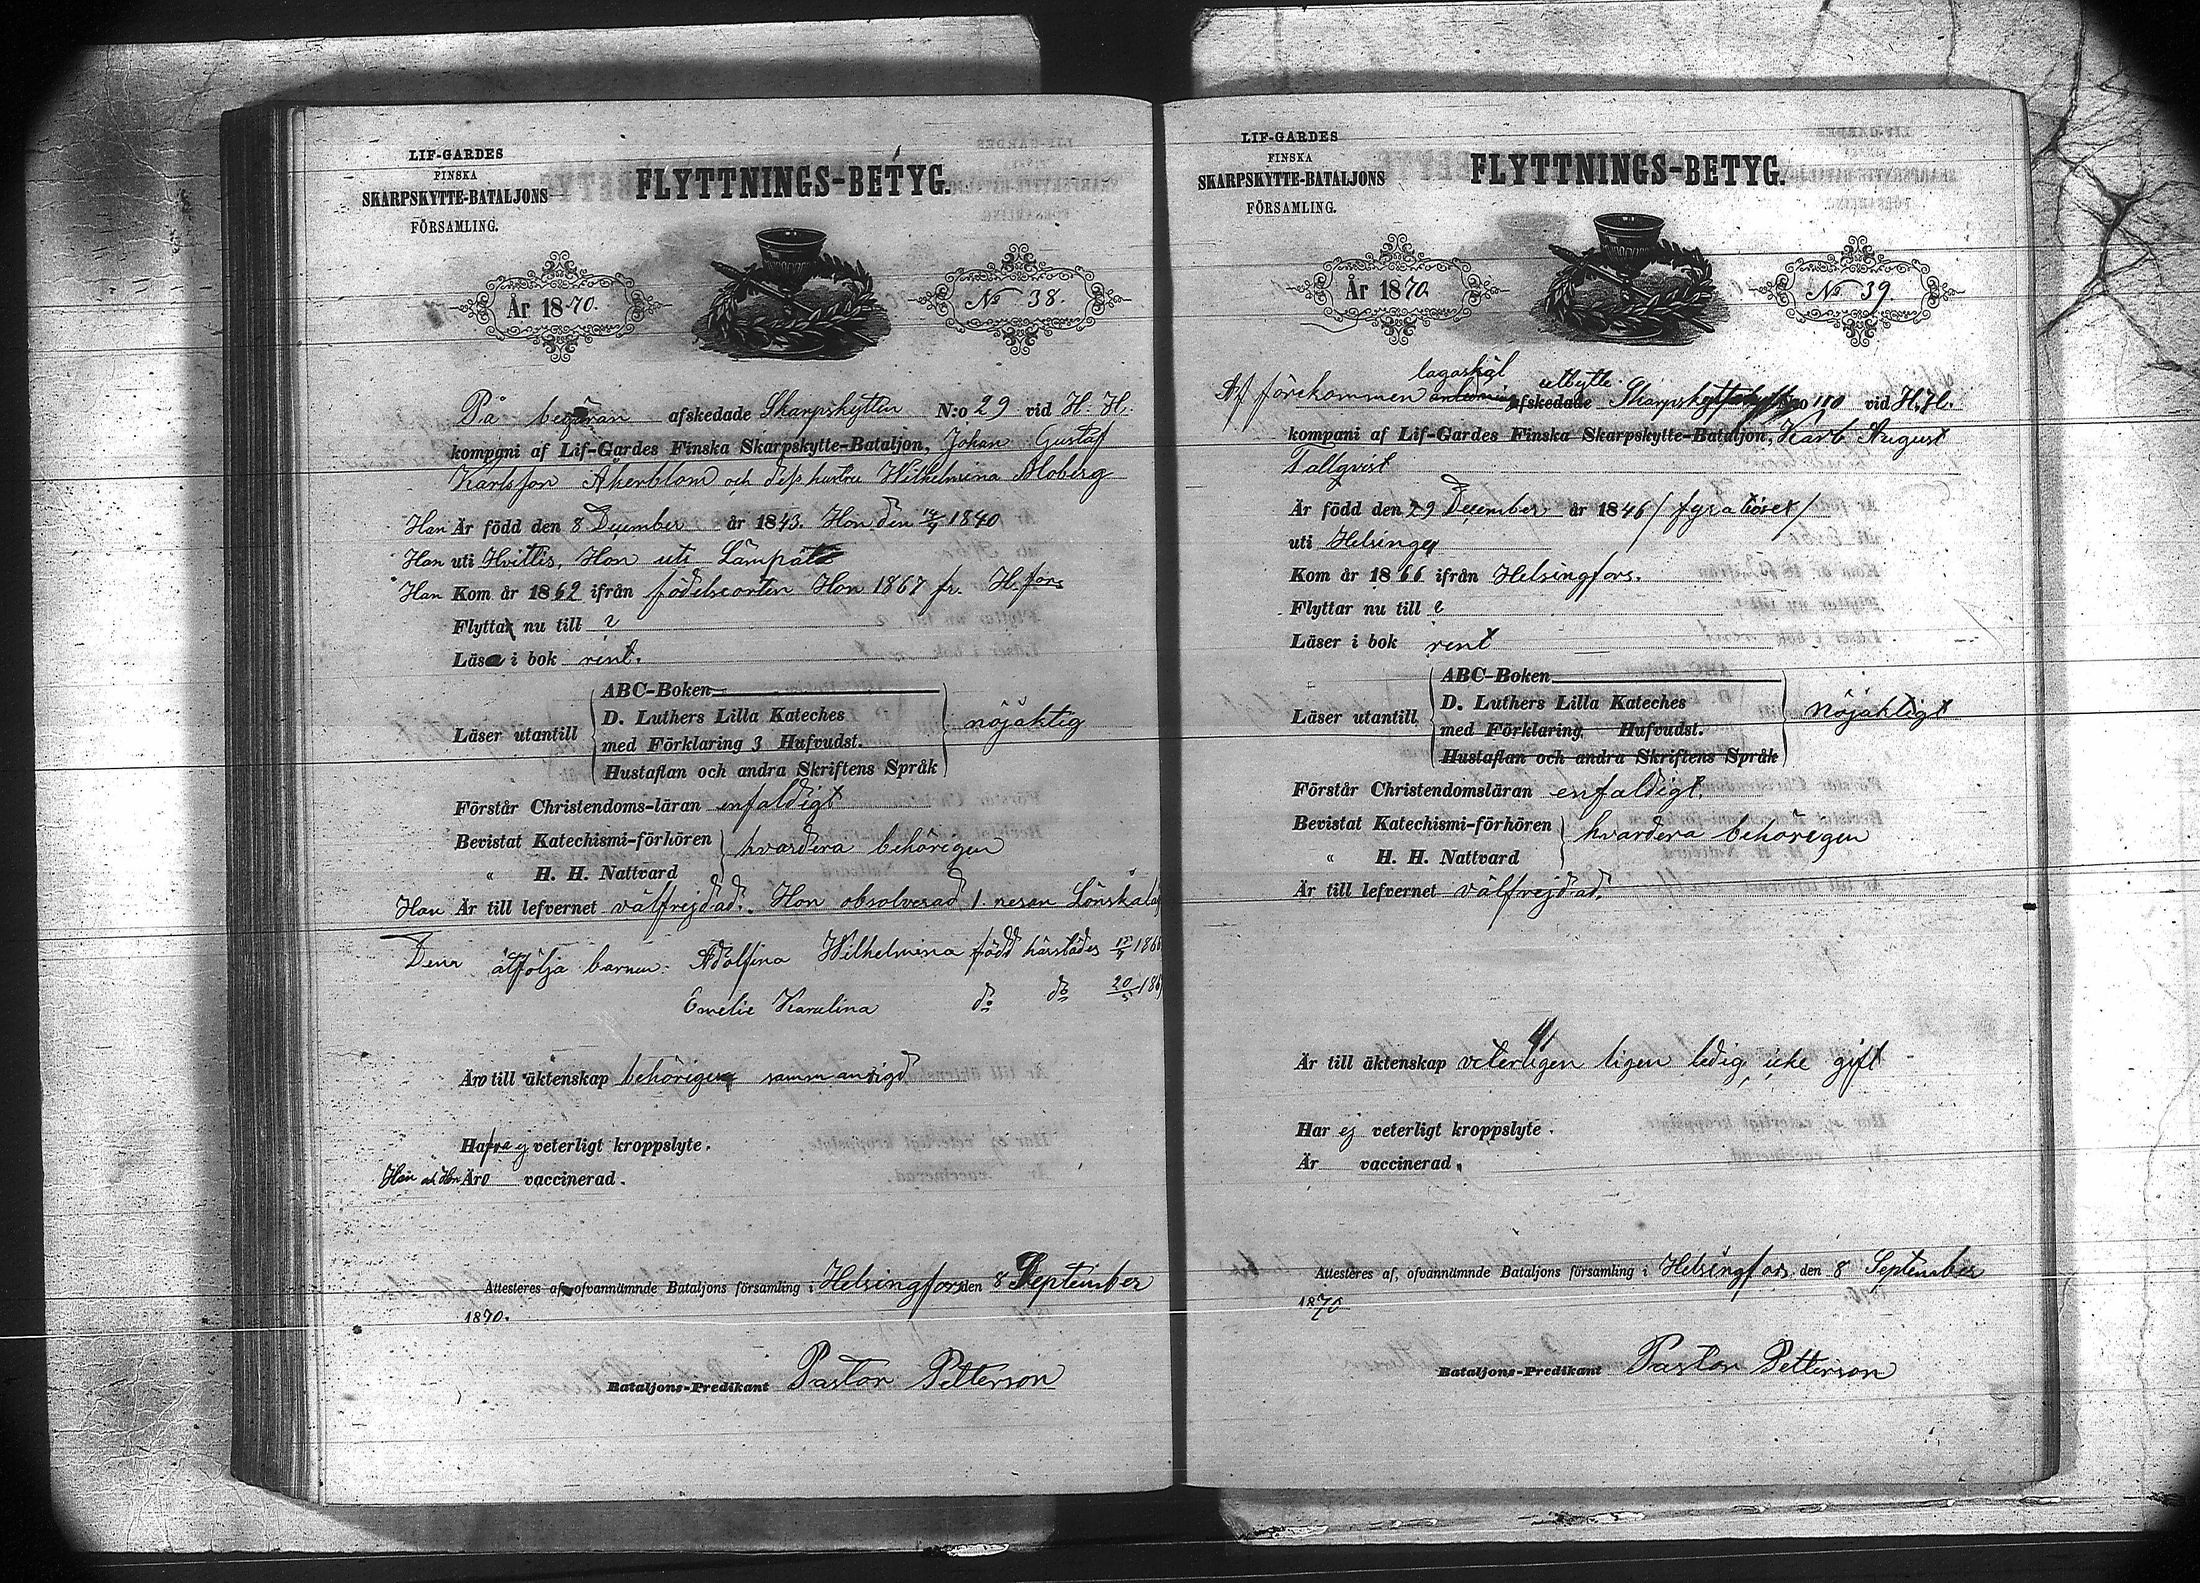 LIF-GARDES
FINSKA
SKARPSKYTTE-BATALJONS
FÖRSAMLING.
FLYTTNINGS-BETYG.
År 1870.
No 38.
På begäran afskedade Skarpskytten N:o 29 vid H. H.
kompani af Lif-Gardes Finska Skarpskytte-Bataljon, Johan Gustaf
Karlsson Åkerblom och dess hustru Wilhelmina Moberg
Han Är född den 8 December år 1843. Hon den 1840
Han uti Hvittis, Hon uti Lampäla
Han Kom år 1862 ifrån födelseorten Hon 1867 fr. H.fors
Flytta nu till ?
Läsa i bok rent.
Läser utantill
ABC-Boken
D. Luthers Lilla Kateches
med Förklaring 3 Hufvudst.
Hustaflan och andra Skriftens Språk
nöjaktig
Förstår Christendoms-läran enfaldigt
Bevistat Katechismi-förhören
" H. H. Nattvard
hvardera behörigen
Han Är till lefvernet välfrejdad. Hon absolverad 1. resan Lönskaläg
Dem åtfölja barnen: Adolfina Wilhelmina född härstädes 186
Emelie Karolina do do 20/5 186
Äro till äktenskap behörigen sammanvigd
Hafva ej veterligt kroppslyte.
Han och Hon Äro vaccinerad.
Attesteres af ofvannämnde Bataljons församling i Helsingfors den 8 September
1870.
Bataljons-Predikant Pastor Petterson
LIF-GARDES
FINSKA
SKARPSKYTTE-BATALJONS
FÖRSAMLING.
FLYTTNINGS-BETYG.
År 1870.
No 39.
lagaskäl utbytte
Af förekommen anledning afskedade Skarpskytten No 110 vid H. H.
kompani af Lif-Gardes Finska Skarpskytte-Bataljon, Karl August
Tallqvist
Är född den 29 December år 1846 / fyratiosex /
uti Helsinge
Kom år 1866 ifrån Helsingfors.
Flyttar nu till ?
Läser i bok rent
Läser utantill
ABC-Boken
D. Luthers Lilla Kateches
med Förklaring Hufvudst.
Hustaflan och andra Skriftens Språk
Nöjaktigt
Förstår Christendomsläran enfaldigt.
Bevistat Katechismi-förhören
" H. H. Nattvard
hvardera behörigen
Är till lefvernet välfrejdad.
Är till äktenskap veterligen ligen ledig, icke gift
Har ej veterligt kroppslyte.
Är vaccinerad.
Attesteres af, ofvannämnde Bataljons församling i Helsingfors den 8 September
1870
Bataljons-Predikant Pastor Petterson